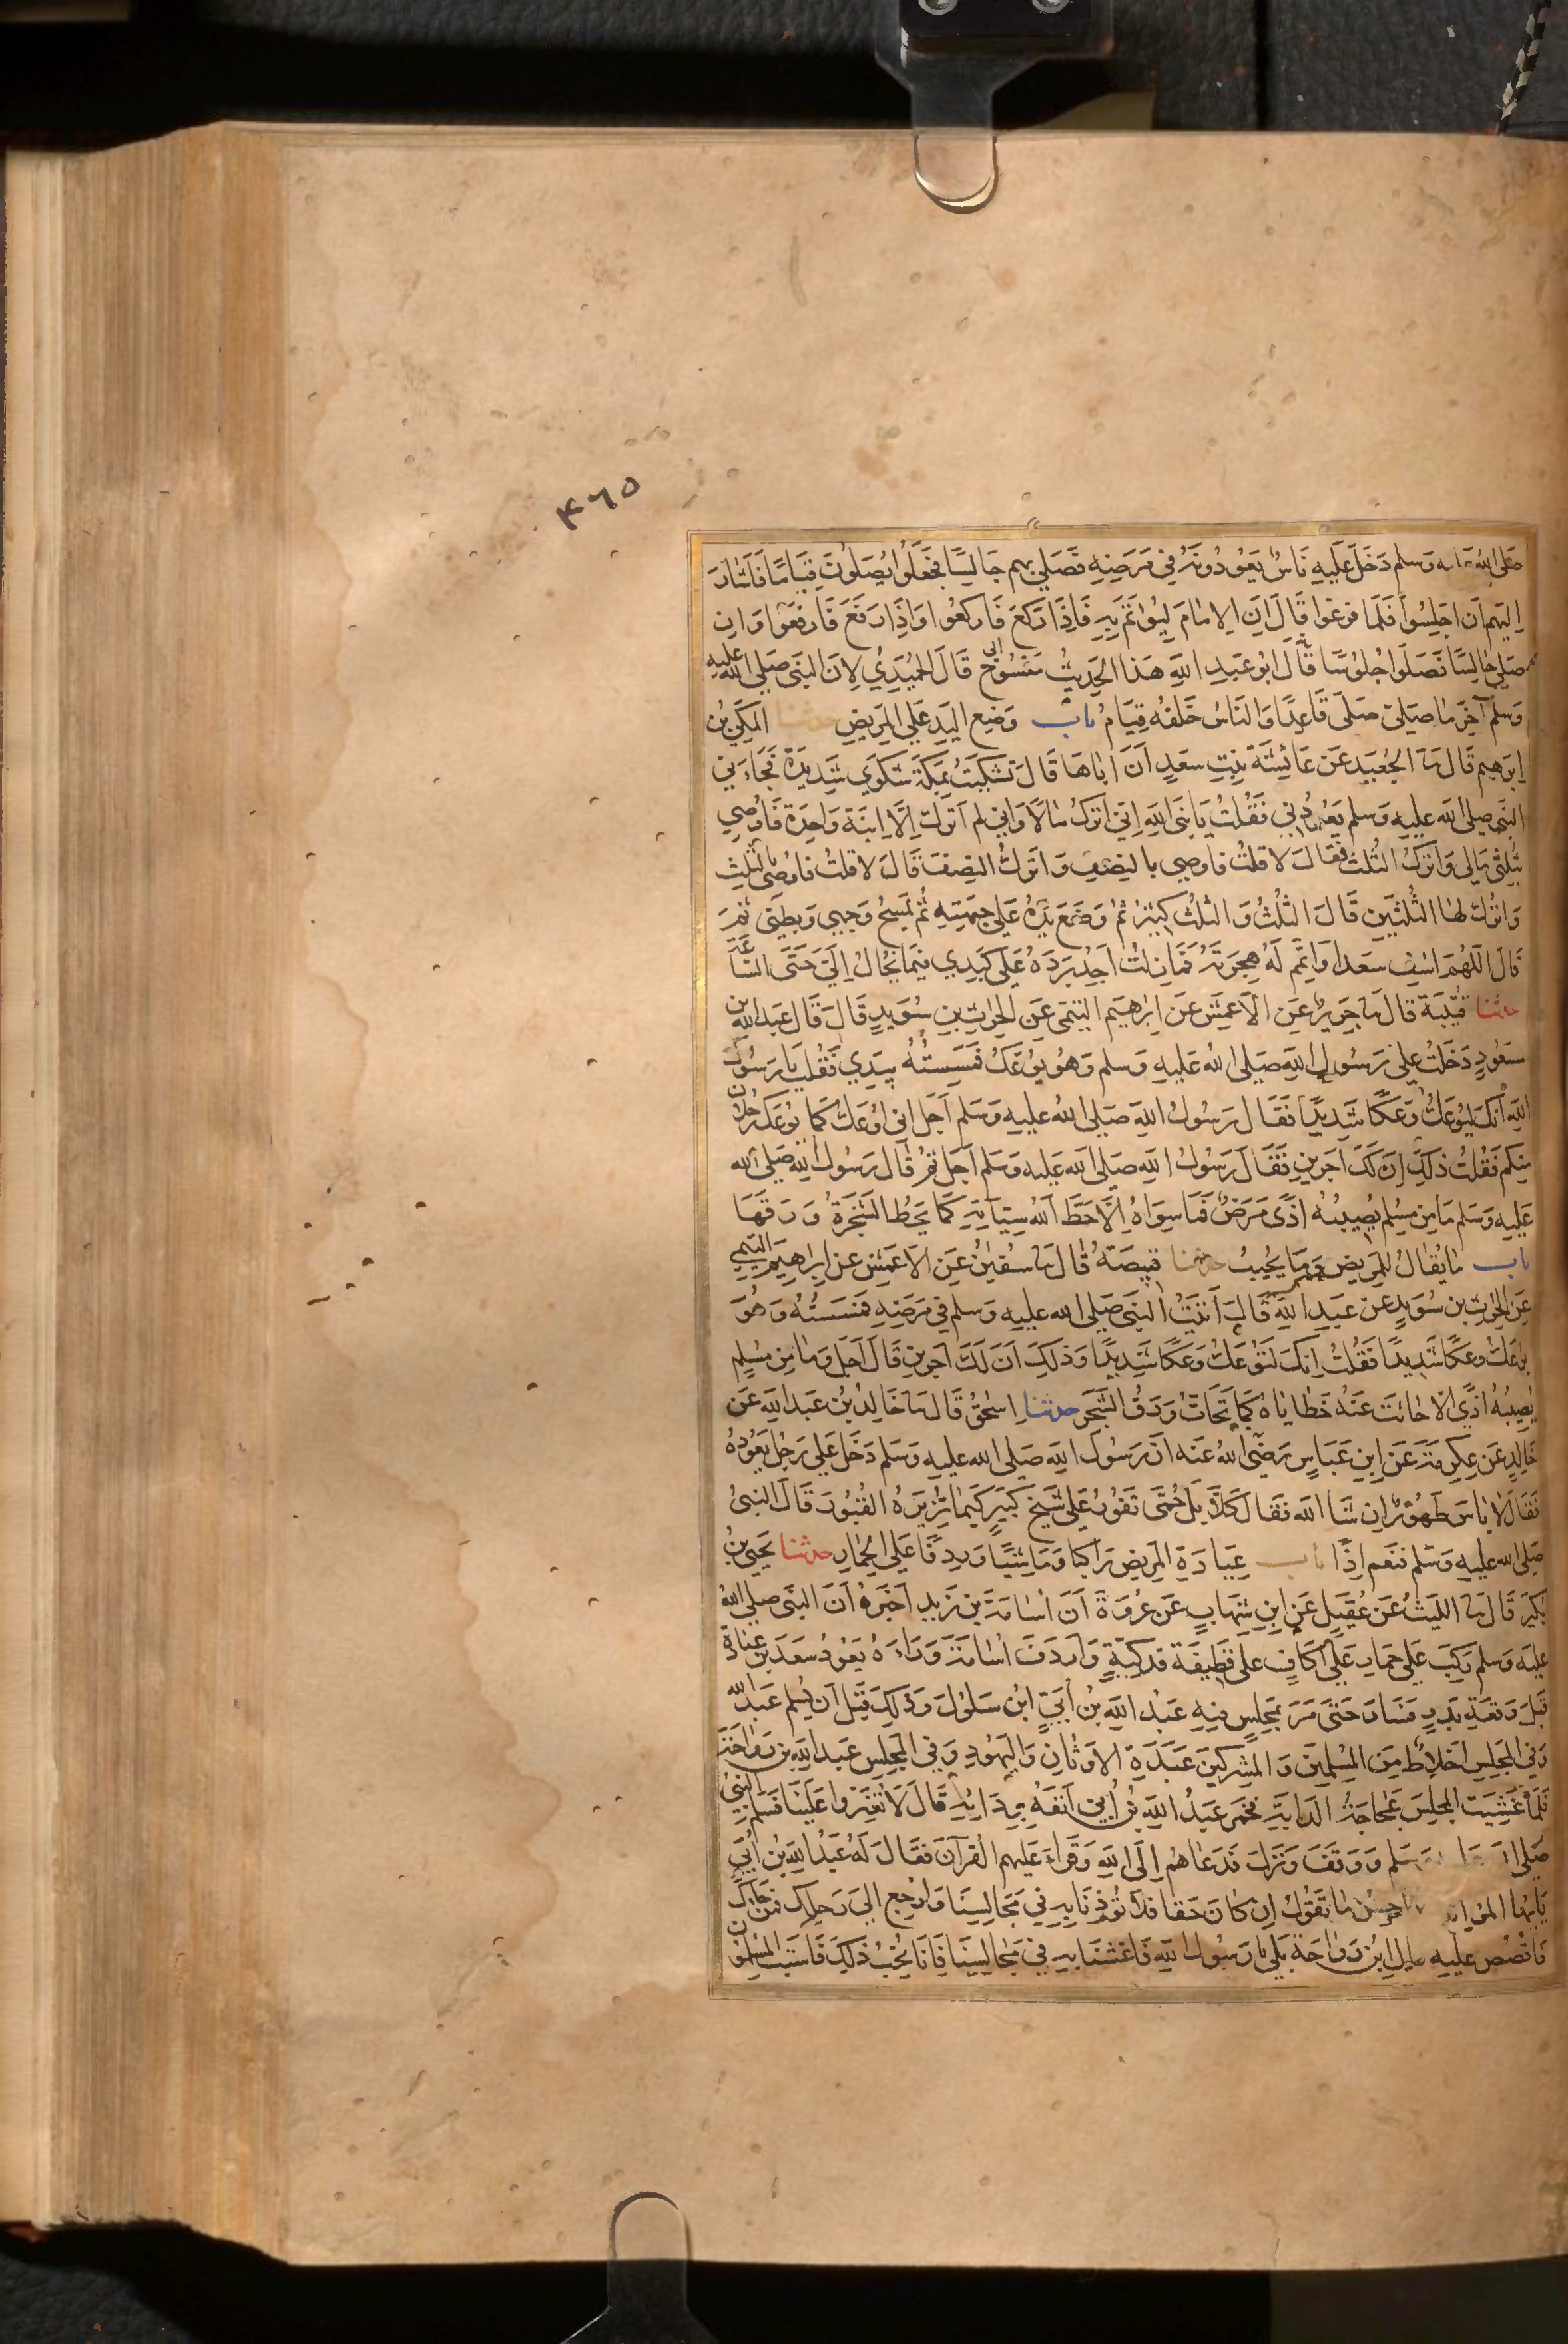 ٤٦٥
صلى الله عليه وسلم دخل عليه ناس يعودونه في مرضه فصلى بهم جالسا فجعلوا يصلون قياما فاشار
اليهم ان اجلسوا فلما فرغوا قال ان الامام ليؤتم به فاذا ركع فاركعوا واذا رفع فارفعوا وان
صلى جالسا فصلوا جلوسا قال ابو عبد الله هذا الحديث منسوخ قال الحميدي لان النبي صلى الله عليه
وسلم آخر ما صلى صلى قاعدا والناس خلفه قيام باب وضع اليد على المريض حدثنا المكي بن
ابرهيم قال نا الجعيد عن عائشة بنت سعد ان اباها قال تشكيت بمكة شكوي شديدة فجاءني
النبي صلى الله عليه وسلم يعودني فقلت يا نبي الله اني اترك مالا واني لم اترك الا ابنة واحدة فاوصي
بثلثي مالي واترك الثلث فقال لا قلت فاوصي بالنصف واترك النصف قال لا قلت فاوصي بالثلث
واترك لها الثلثين قال الثلث والثلث كثير ثم وضع يده على جبهته ثم مسح وجهي وبطني ثم
قال اللهم اشف سعدا واتمم له هجرته فما زلت اجد برده على كبدي فيما يخال الي حتى الساعة
حدثنا قتيبة قال نا جرير عن الاعمش عن ابرهيم التيمي عن الحرث بن سويد قال قال عبد الله بن
مسعود دخلت على رسول الله صلى الله عليه وسلم وهو يوعك فمسسته بيدي فقلت يا رسول
الله انك لتوعك وعكا شديدا فقال رسول الله صلى الله عليه وسلم اجل اني اوعك كما يوعك رجلان
منكم فقلت ذلك ان لك اجرين فقال رسول الله صلى الله عليه وسلم اجل ثم قال رسول الله صلى الله
عليه وسلم ما من مسلم يصيبه اذى مرض فما سواه الا حط الله سيآته كما تحط الشجرة ورقها
باب ما يقال للمريض وما يجيب حدثنا قبيصة قال نا سفين عن الاعمش عن ابراهيم التيمي
عن الحرث بن سويد عن عبد الله قال اتيت النبي صلى الله عليه وسلم في مرضه فمسسته وهو
يوعك وعكا شديدا فقلت انك لتوعك وعكا شديدا وذلك ان لك اجرين قال اجل وما من مسلم
يصيبه اذى الا حاتت عنه خطاياه كما تحات ورق الشجر حدثنا اسحق قال نا خالد بن عبد الله عن
خالد عن عكرمة عن ابن عباس رضى الله عنه ان رسول الله صلى الله عليه وسلم دخل على رجل يعوده
فقال لا باس طهور ان شا الله فقال كلا بل حمى تفور على شيخ كبير كيما تزيره القبور قال النبي
صلى الله عليه وسلم فنعم اذا باب عيادة المريض راكبا وماشيا وردفا على الحمار حدثنا يحيى بن
بكير قال نا الليث عن عقيل عن ابن شهاب عن عروة ان اسامة بن زيد اخبره ان النبي صلى الله
عليه وسلم ركب على حمار على اكاف على قطيفة فدكية واردف اسامة وراءه يعود سعد بن عبادة
قبل وقعة بدر فسار حتى مر بمجلس فيه عبد الله بن أبي ابن سلول وذلك قبل ان يسلم عبد الله
وفي المجلس اخلاط من المسلمين والمشركين عبدة الاوثان واليهود وفي المجلس عبد الله بن رواحة
فلما غشيت المجلس عجاجة الدابة خمر عبد الله بن أبي انفه بردائه قال لا تغبروا علينا فسلم النبي
صلى الله وسلم ووقف ونزل فدعاهم الى الله وقراء عليهم القرآن فقال له عبد الله بن أبي
يايها المرء احسن ما تقول ان كان حقا فلا تؤذنا به في مجالسنا وارجع الى رحلك فمن جاءك
فاقصص عليه قال ابن رواحة بلى يا رسول الله فاغشنا به في مجالسنا فانا نحب ذلك فاستب المسلمون